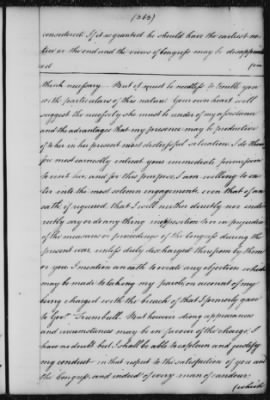 (363)
considered. If it is granted he should have the earliest no-
tice or the end and the views of Congress may be disappoint-
ed
think necessary – But it must be needless to trouble you
with particulars of this nature. Your own heart will
suggest the necessity she must be under of my assistance
and the advantages that my presence may be productive
of to her in her present most distressful situation. I do there
fore most earnestly entreat your immediate permission
to visit her, and for this purpose, I am willing to en
ter into the most solemn engagements, even that of an
oath if required, that I will neither directly nor indi
rectly say or do any thing in opposition to or in prejudice
of the measures or proceedings of the Congress during the
present war, unless duly discharged therefrom by them
or you. I mention an oath to evade any objection which
may be made to taking my parole, on account of my
being charged with the breach of that I formerly gave
to Govr. Trumbull. But however strong appearances
and circumstances may be in favour of this charge, I
have no doubt but I shall be able to explain and justify
my conduct in that respect to the satisfaction of you and
the Congress, and indeed of every man of candour
(which